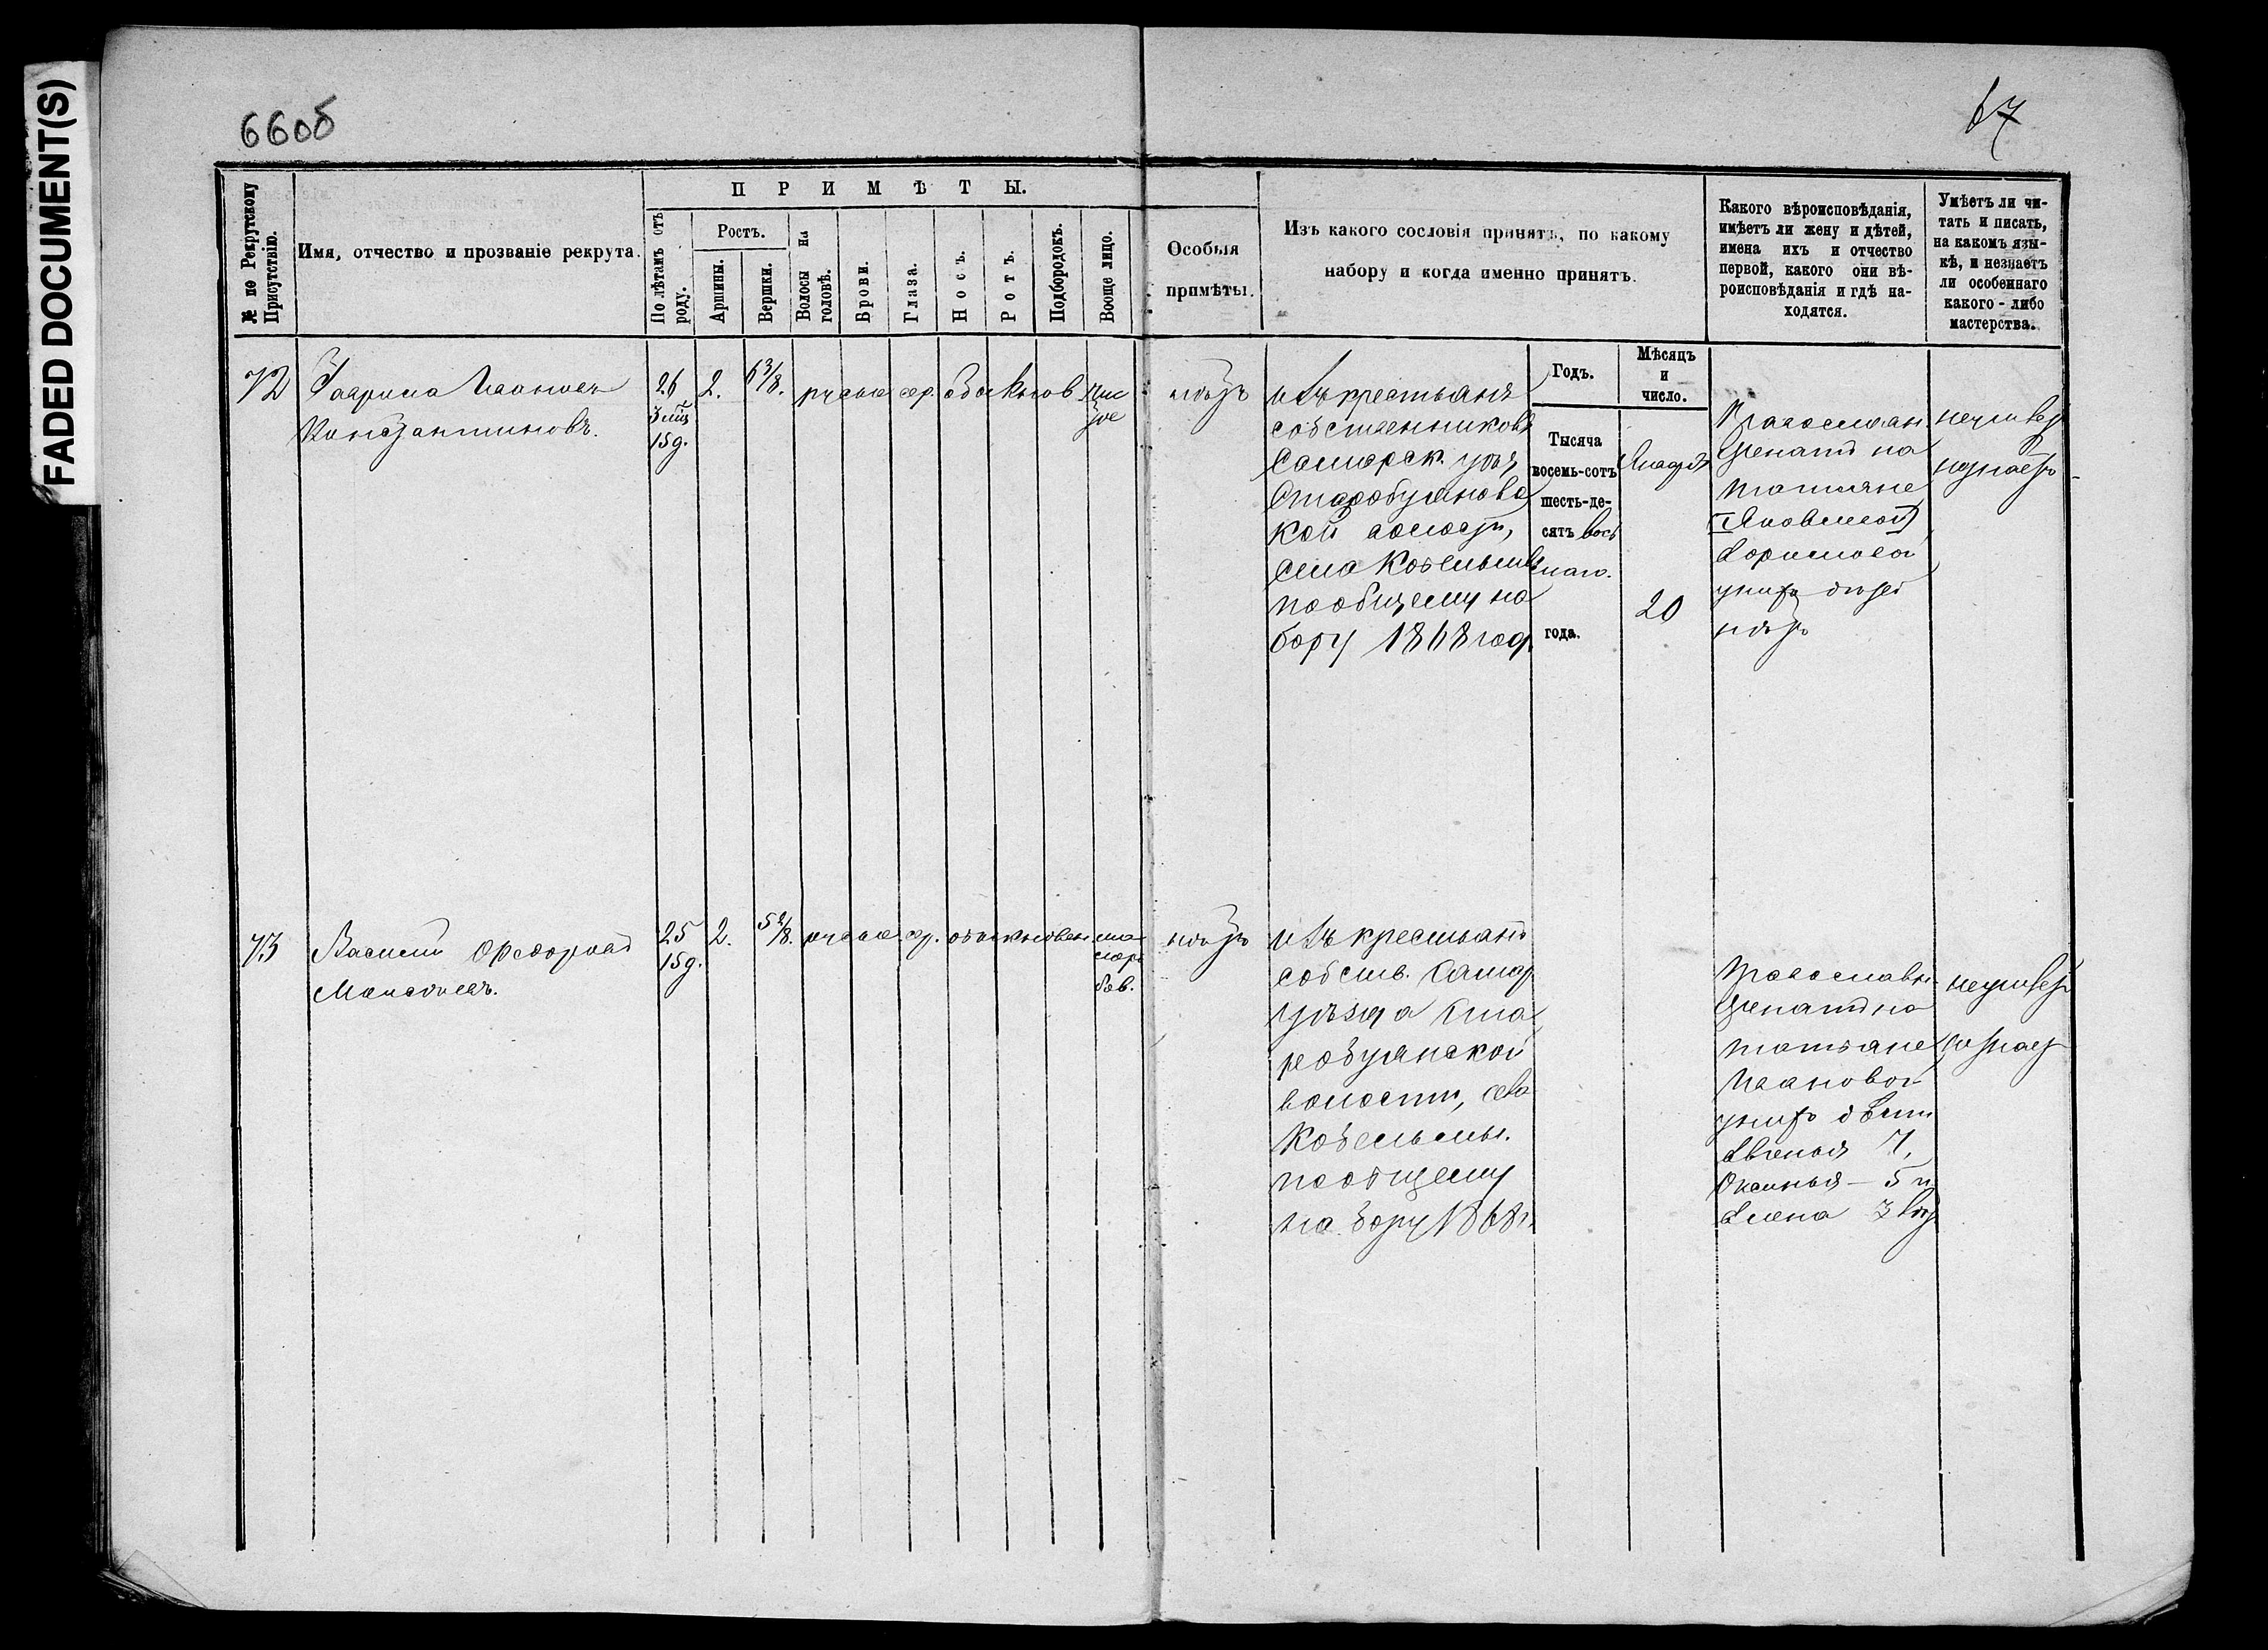 FADED DOCUMENT(S)
66об
67
№ по Рекрутскому Присутствію.
Имя, отчество и прозваніе рекрута.
ПРИМѢТЫ.
По лѣтамъ отъ роду.
Ростъ.
Аршины.
Вершки.
Волосы на головѣ.
Брови.
Глаза.
Носъ.
Ротъ.
Подбородокъ.
Вообще лицо.
Особыя
примѣты.
Изъ какого сословія принятъ, по какому
набору и когда именно принятъ.
Какого вѣроисповѣданія,
имѣетъ ли жену и дѣтей,
имена ихъ и отчество
первой, какого они вѣ-
роисповѣданія и гдѣ на-
ходятся.
Умѣетъ ли чи-
тать и писать,
на какомъ язы-
кѣ, и незнаетъ
ли особеннаго
какого-либо
мастерства.
72
Гаврила Ивановъ
Константиновъ.
26
15д.
2.
6 3/8.
русые
сер.
обыкнов
чис
тое
нѣтъ
изъ крестьянъ
собственниковъ
Самарск. уѣз
Старобуяновс
кой волости,
села Кобельмы
по общему на
бору 1868 год.
Годъ.
Тысяча
восемь-сотъ
шесть-де-
сятъ вось
маго.
года.
Мѣсяцъ
и
число.
20
Православн
женатъ на
Татьяне
Яковлевой
у нихъ дѣтей
нѣтъ
неумѣетъ
незнаетъ
73
Василій Ѳедоровъ
25
15д.
2.
5 2/8.
русые
сер.
обыкновен
нѣтъ
изъ крестьянъ
собств. Самар
уѣзда Ста
робуянской
волости, села
Кобельмы.
по общему
набору 1868г.
Православн.
женатъ на
Татьяне
Ивановой
у нихъ дѣти
Евгенья 7,
Оксинья - 5 и
Елена 3 лѣт
неумѣетъ
незнает